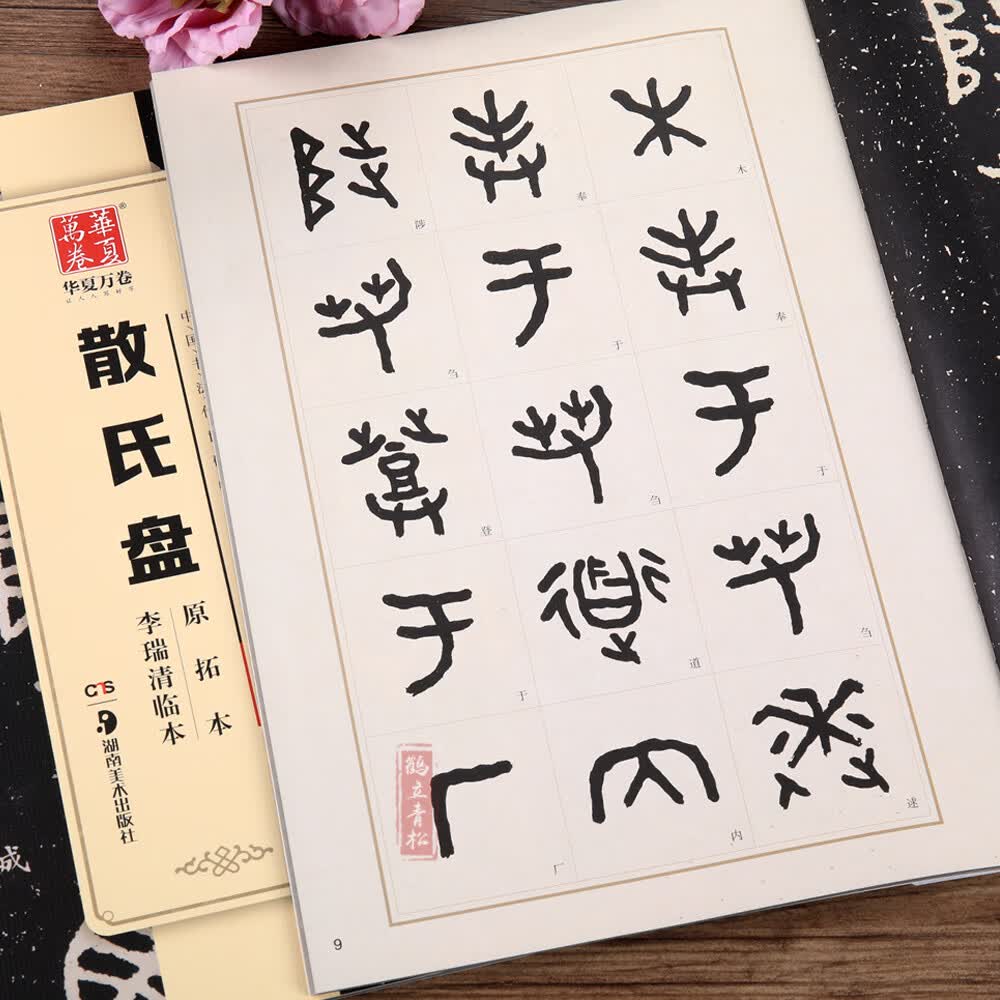 華夏
萬卷
®
华夏万卷
让人人写好字
散氏盘
原拓本
李瑞清临本
湖南美术出版社
木
奉
于
刍
奉
于
刍
道
内
陟
刍
登
于
厂
鹤立青松
9